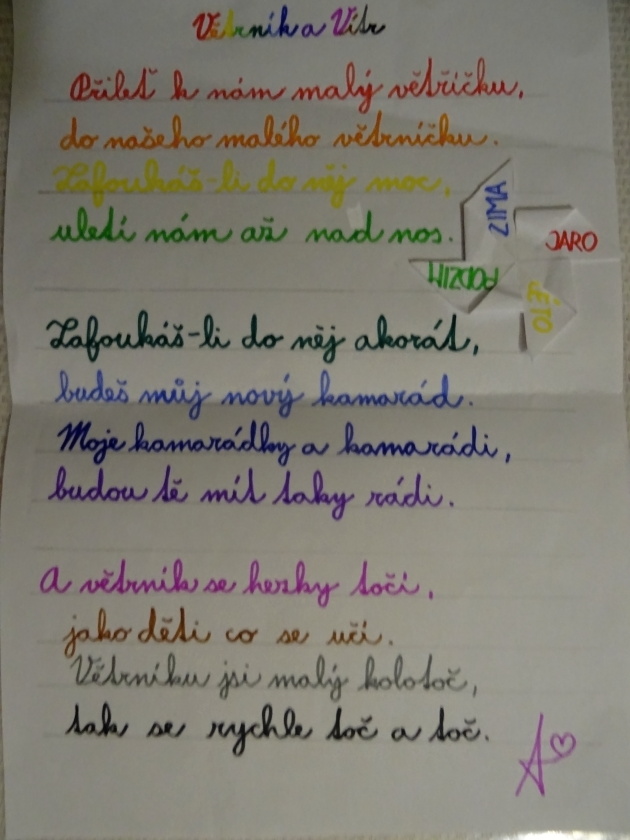 Větrník a Vítr
Přileť k nám malý větříčku,
do našeho malého větrníčku.
Zafoukáš-li do něj moc,
uletí nám až nad nos.
ZIMA
JARO
PODZIM
LÉTO
Zafoukáš-li do něj akorát,
budeš můj nový kamarád.
Moje kamarádky a kamarádi,
budou tě mít taky rádi.
A větrník se hezky točí,
jako děti co se učí.
Větrníku jsi malý kolotoč,
tak se rychle toč a toč.
A